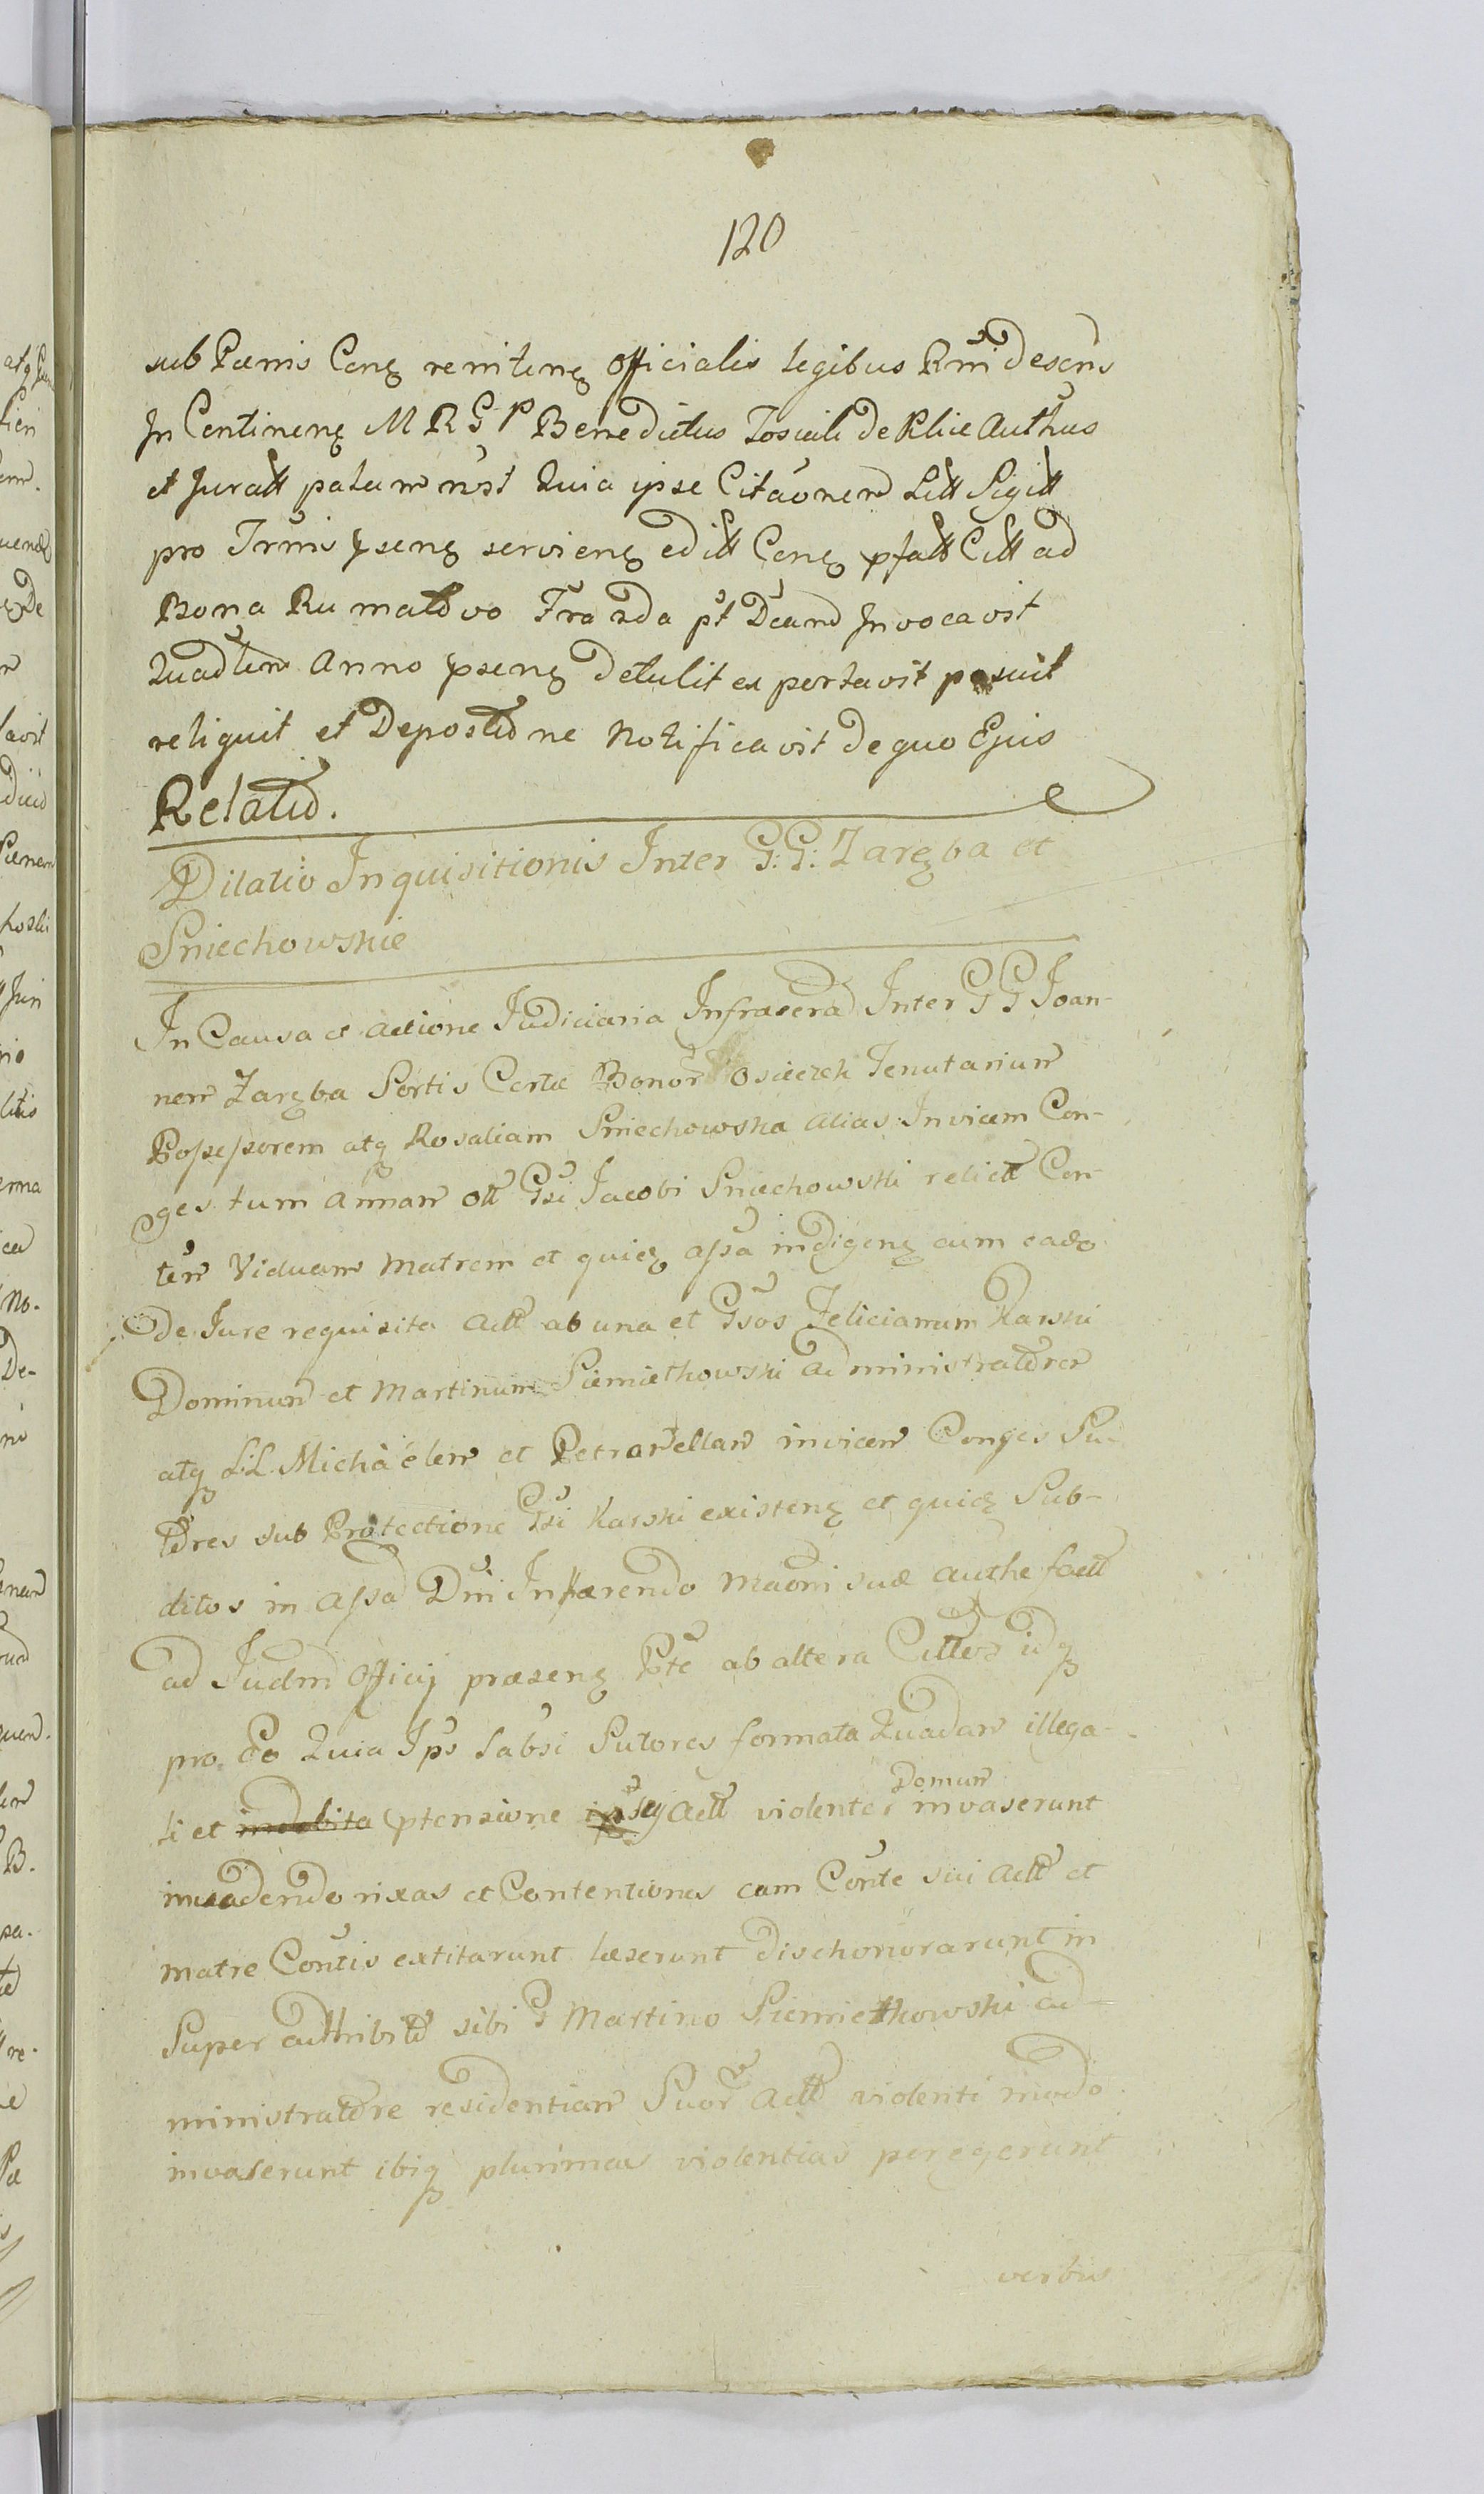 120
sub Pœnis Conꝫ renitenꝫ officialis legibus Rñi descñs
In Continenꝫ M R G P Benedictus de Kłice Authus
et Juratt palam nost Quia ipse Citaõnem Litt Sigitt
pro Trmis psenꝫ servienꝫ editt Conꝫ pfatt Citt ad
Bona Ru mattvo pt Invocavit
Anno psenꝫ Detulit ex portavit posuit
reliquit et Depostne Notificavit de quo Ejus
Relatio.
Dilatio Inquisitionis Inter G: G: Zaręba et
Sniechowskie
In Causa et actione Judiciaria Infrascra Inter G G Joan-
nem Zaręba Sortis Certæ Bonor Osieczek Tenutarium
Possessorem atq Rosaliam Sniechowska alias Invicem Con-
ges tum annam ott Gsi Jacobi Sniechowski relictt Con-
tem Viduam Matrem et quicꝫ assa indigenꝫ cum eado
De Jure requisita Actt ab una et Gsos Felicianum Karski
Dominum et Martinum Siemiethowski administratorem
atq LL. Michàëlem et Petronellam invicem Conges Su-
tores sub Protectione Gsi Karski existenꝫ et quicꝫ Sub-
ditos in assa Dni Inhærendo maoni suæ authe factt
ad Judm Officij præsenꝫ Pte ab altera Cittos idq
pro Eo Quia Ips Labsi Sutores formata Quadam illega-
li et indebita ptensione Actt violenter Domum invaserunt
invadendo rixas et Contentiones cum Conte sui Actt et
matre Contis extitarunt læserunt dischonorarunt in
Super adttribito sibi G Martino Siemiethowski ad-
ministratore residentiam Suor Actt violenti modo
invaserunt ibiq plurimas violentias peregerunt
verbis